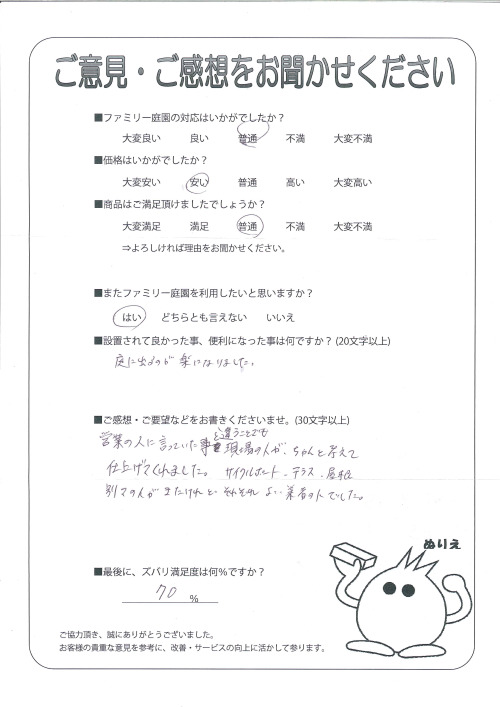 ご意見・ご感想をお聞かせください
■ファミリー庭園の対応はいかがでしたか？
大変良い 良い 普通 不満 大変不満
■価格はいかがでしたか？
大変安い 安い 普通 高い 大変高い
■商品はご満足頂けましたでしょうか？
大変満足 満足 普通 不満 大変不満
⇒よろしければ理由をお聞かせください。
■またファミリー庭園を利用したいと思いますか？
はい どちらとも言えない いいえ
■設置されて良かった事、便利になった事は何ですか？(20文字以上)
庭に出るのが楽になりました。
■ご感想・ご要望などをお書きくださいませ。(30文字以上)
と違うことでも
営業の人に言っていた事 現場の人が、ちゃんと考えて
仕上げてくれました。 サイクルポート、テラス、屋根
別々の人がまたけれど、それぞれよい業者の人でした。
ぬりえ
■最後に、ズバリ満足度は何%ですか？
70 %
ご協力頂き、誠にありがとうございました。
お客様の貴重な意見を参考に、改善・サービスの向上に活かして参ります。